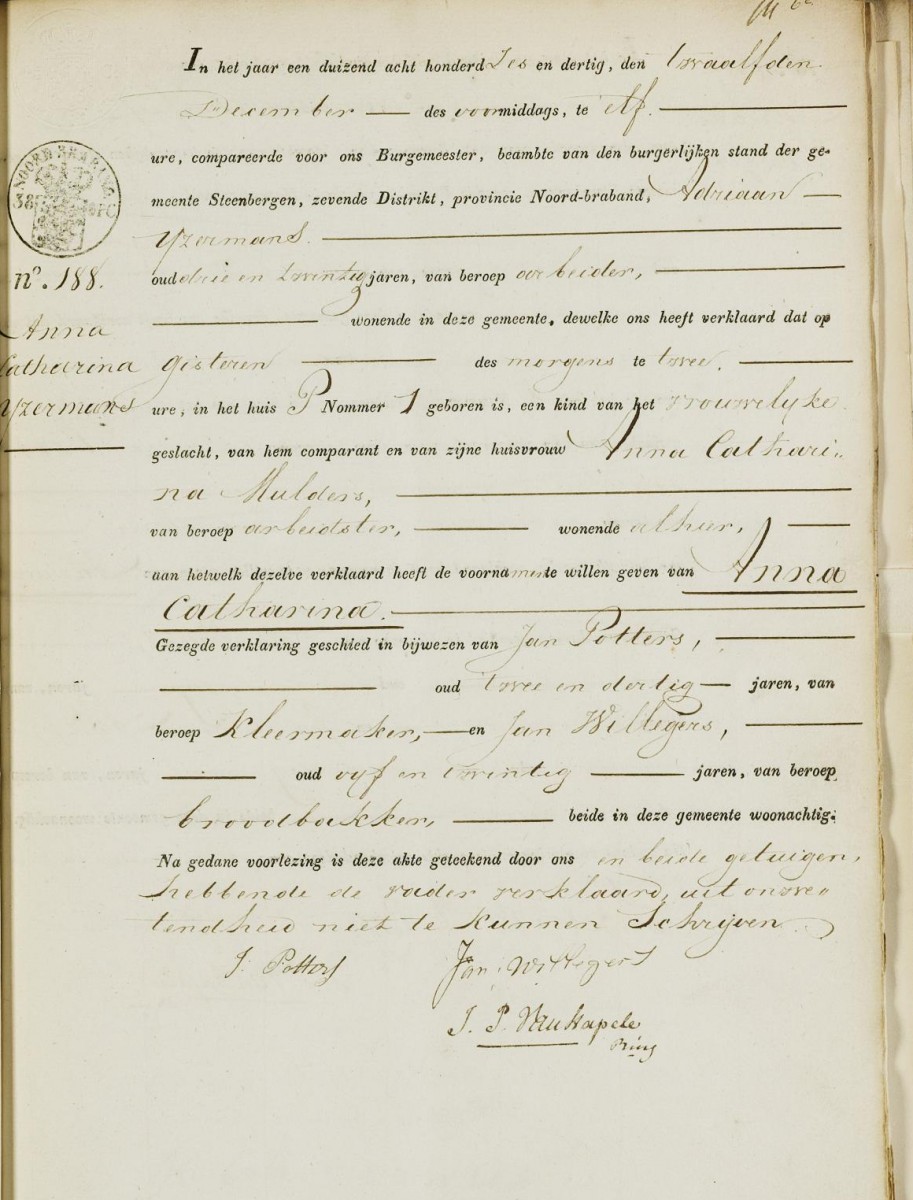 In het jaar een duizend acht honderd Zes en dertig, den twaalfden
December des voormiddags, te elf.
ure, compareerde voor ons Burgemeester, beambte van den burgerlijken stand der ge-
meente Steenbergen, zevende Distrikt, provincie Noord-braband, Adriaan
Yzermans.
oud drie en twintig jaren, van beroep arbeider,
wonende in deze gemeente, dewelke ons heeft verklaard dat op
gisteren des morgens te twee.
ure, in het huis P Nommer 1 geboren is, een kind van het vrouwelyke
geslacht, van hem comparant en van zijne huisvrouw Anna Cathari-
na Mulders,
van beroep arbeidster, wonende alhier,
aan hetwelk dezelve verklaard heeft de voornamen te willen geven van Anna
Catharina.
Gezegde verklaring geschied in bijwezen van Jan Potters,
oud twee en dertig jaren, van
beroep Kleermaker, en Jan Willegers,
oud vyf en twintig jaren, van beroep
broodbakker, beide in deze gemeente woonachtig.
Na gedane voorlezing is deze akte geteekend door ons en beide getuigen,
hebbende de vader verklaard, uit onwe-
tendheid niet te kunnen Schrijven.
J. Potters
Jan Willegers
J. P. Van Hapele
NOORD BRABAND
38
nº. 188.
Anna
Catharina
Yzermans